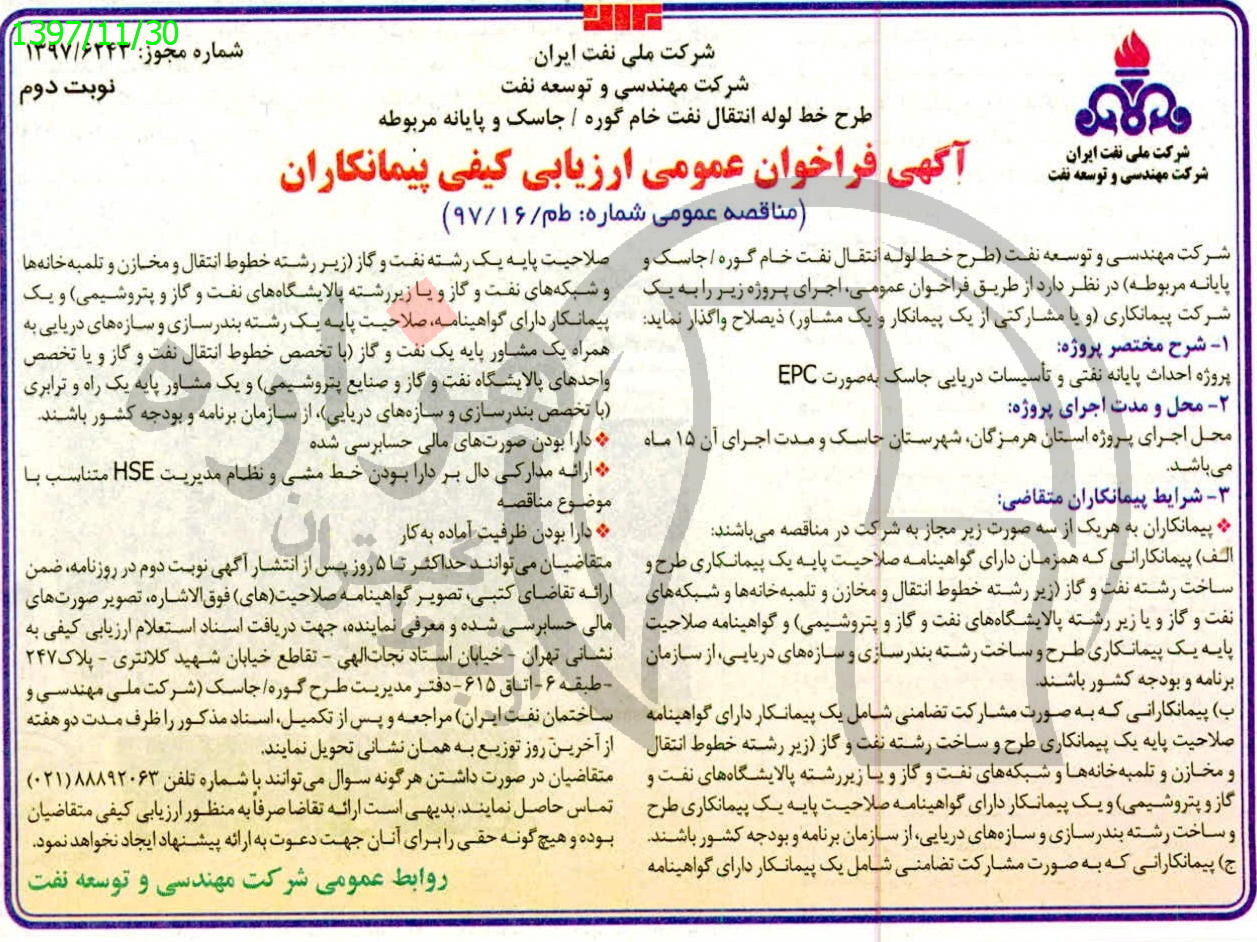 1397/11/30
شماره مجوز: ۱۳۹۷/۶۲۴۳
نوبت دوم
شرکت ملی نفت ایران
شرکت مهندسی و توسعه نفت
طرح خط لوله انتقال نفت خام گوره / جاسک و پایانه مربوطه
شرکت ملی نفت ایران
شرکت مهندسی و توسعه نفت
آگهی فراخوان عمومی ارزیابی کیفی پیمانکاران
(مناقصه عمومی شماره: طم/۹۷/۱۶)
شرکت مهندسی و توسعه نفت (طرح خط لوله انتقال نفت خام گوره / جاسک و
پایانه مربوطه) در نظر دارد از طریق فراخوان عمومی، اجرای پروژه زیر را به یک
شرکت پیمانکاری (و یا مشارکتی از یک پیمانکار و یک مشاور) ذیصلاح واگذار نماید:
۱- شرح مختصر پروژه:
پروژه احداث پایانه نفتی و تأسیسات دریایی جاسک به‌صورت EPC
۲- محل و مدت اجرای پروژه:
محل اجرای پروژه استان هرمزگان، شهرستان جاسک و مدت اجرای آن ۱۵ ماه
می‌باشد.
۳- شرایط پیمانکاران متقاضی:
❖ پیمانکاران به هریک از سه صورت زیر مجاز به شرکت در مناقصه می‌باشند:
الف) پیمانکارانی که همزمان دارای گواهینامه صلاحیت پایه یک پیمانکاری طرح و
ساخت رشته نفت و گاز (زیر رشته خطوط انتقال و مخازن و تلمبه‌خانه‌ها و شبکه‌های
نفت و گاز و یا زیر رشته پالایشگاه‌های نفت و گاز و پتروشیمی) و گواهینامه صلاحیت
پایه یک پیمانکاری طرح و ساخت رشته بندرسازی و سازه‌های دریایی، از سازمان
برنامه و بودجه کشور باشند.
ب) پیمانکارانی که به صورت مشارکت تضامنی شامل یک پیمانکار دارای گواهینامه
صلاحیت پایه یک پیمانکاری طرح و ساخت رشته نفت و گاز (زیر رشته خطوط انتقال
و مخازن و تلمبه‌خانه‌ها و شبکه‌های نفت و گاز و یا زیررشته پالایشگاه‌های نفت و
گاز و پتروشیمی) و یک پیمانکار دارای گواهینامه صلاحیت پایه یک پیمانکاری طرح
و ساخت رشته بندرسازی و سازه‌های دریایی، از سازمان برنامه و بودجه کشور باشند.
ج) پیمانکارانی که به صورت مشارکت تضامنی شامل یک پیمانکار دارای گواهینامه
صلاحیت پایه یک رشته نفت و گاز (زیر رشته خطوط انتقال و مخازن و تلمبه‌خانه‌ها
و شبکه‌های نفت و گاز و یا زیررشته پالایشگاه‌های نفت و گاز و پتروشیمی) و یک
پیمانکار دارای گواهینامه، صلاحیت پایه یک رشته بندرسازی و سازه‌های دریایی به
همراه یک مشاور پایه یک نفت و گاز (با تخصص خطوط انتقال نفت و گاز و یا تخصص
واحدهای پالایشگاه نفت و گاز و صنایع پتروشیمی) و یک مشاور پایه یک راه و ترابری
(با تخصص بندرسازی و سازه‌های دریایی)، از سازمان برنامه و بودجه کشور باشند.
❖ دارا بودن صورت‌های مالی حسابرسی شده
❖ ارائه مدارکی دال بر دارا بودن خط مشی و نظام مدیریت HSE متناسب با
موضوع مناقصه
❖ دارا بودن ظرفیت آماده به‌کار
متقاضیان می‌توانند حداکثر تا ۵ روز پس از انتشار آگهی نوبت دوم در روزنامه، ضمن
ارائه تقاضای کتبی، تصویر گواهینامه صلاحیت(های) فوق‌الاشاره، تصویر صورت‌های
مالی حسابرسی شده و معرفی نماینده، جهت دریافت اسناد استعلام ارزیابی کیفی به
نشانی تهران - خیابان استاد نجات‌الهی - تقاطع خیابان شهید کلانتری - پلاک۲۴۷
-طبقه ۶-اتاق ۶۱۵-دفتر مدیریت طرح گوره/جاسک (شرکت ملی مهندسی و
ساختمان نفت ایران) مراجعه و پس از تکمیل، اسناد مذکور را ظرف مدت دو هفته
از آخرین روز توزیع به همان نشانی تحویل نمایند.
متقاضیان در صورت داشتن هرگونه سوال می‌توانند با شماره تلفن ۸۸۸۹۲۰۶۳ (۰۲۱)
تماس حاصل نمایند. بدیهی است ارائه تقاضا صرفاً به منظور ارزیابی کیفی متقاضیان
بوده و هیچ گونه حقی را برای آنان جهت دعوت به ارائه پیشنهاد ایجاد نخواهد نمود.
روابط عمومی شرکت مهندسی و توسعه نفت